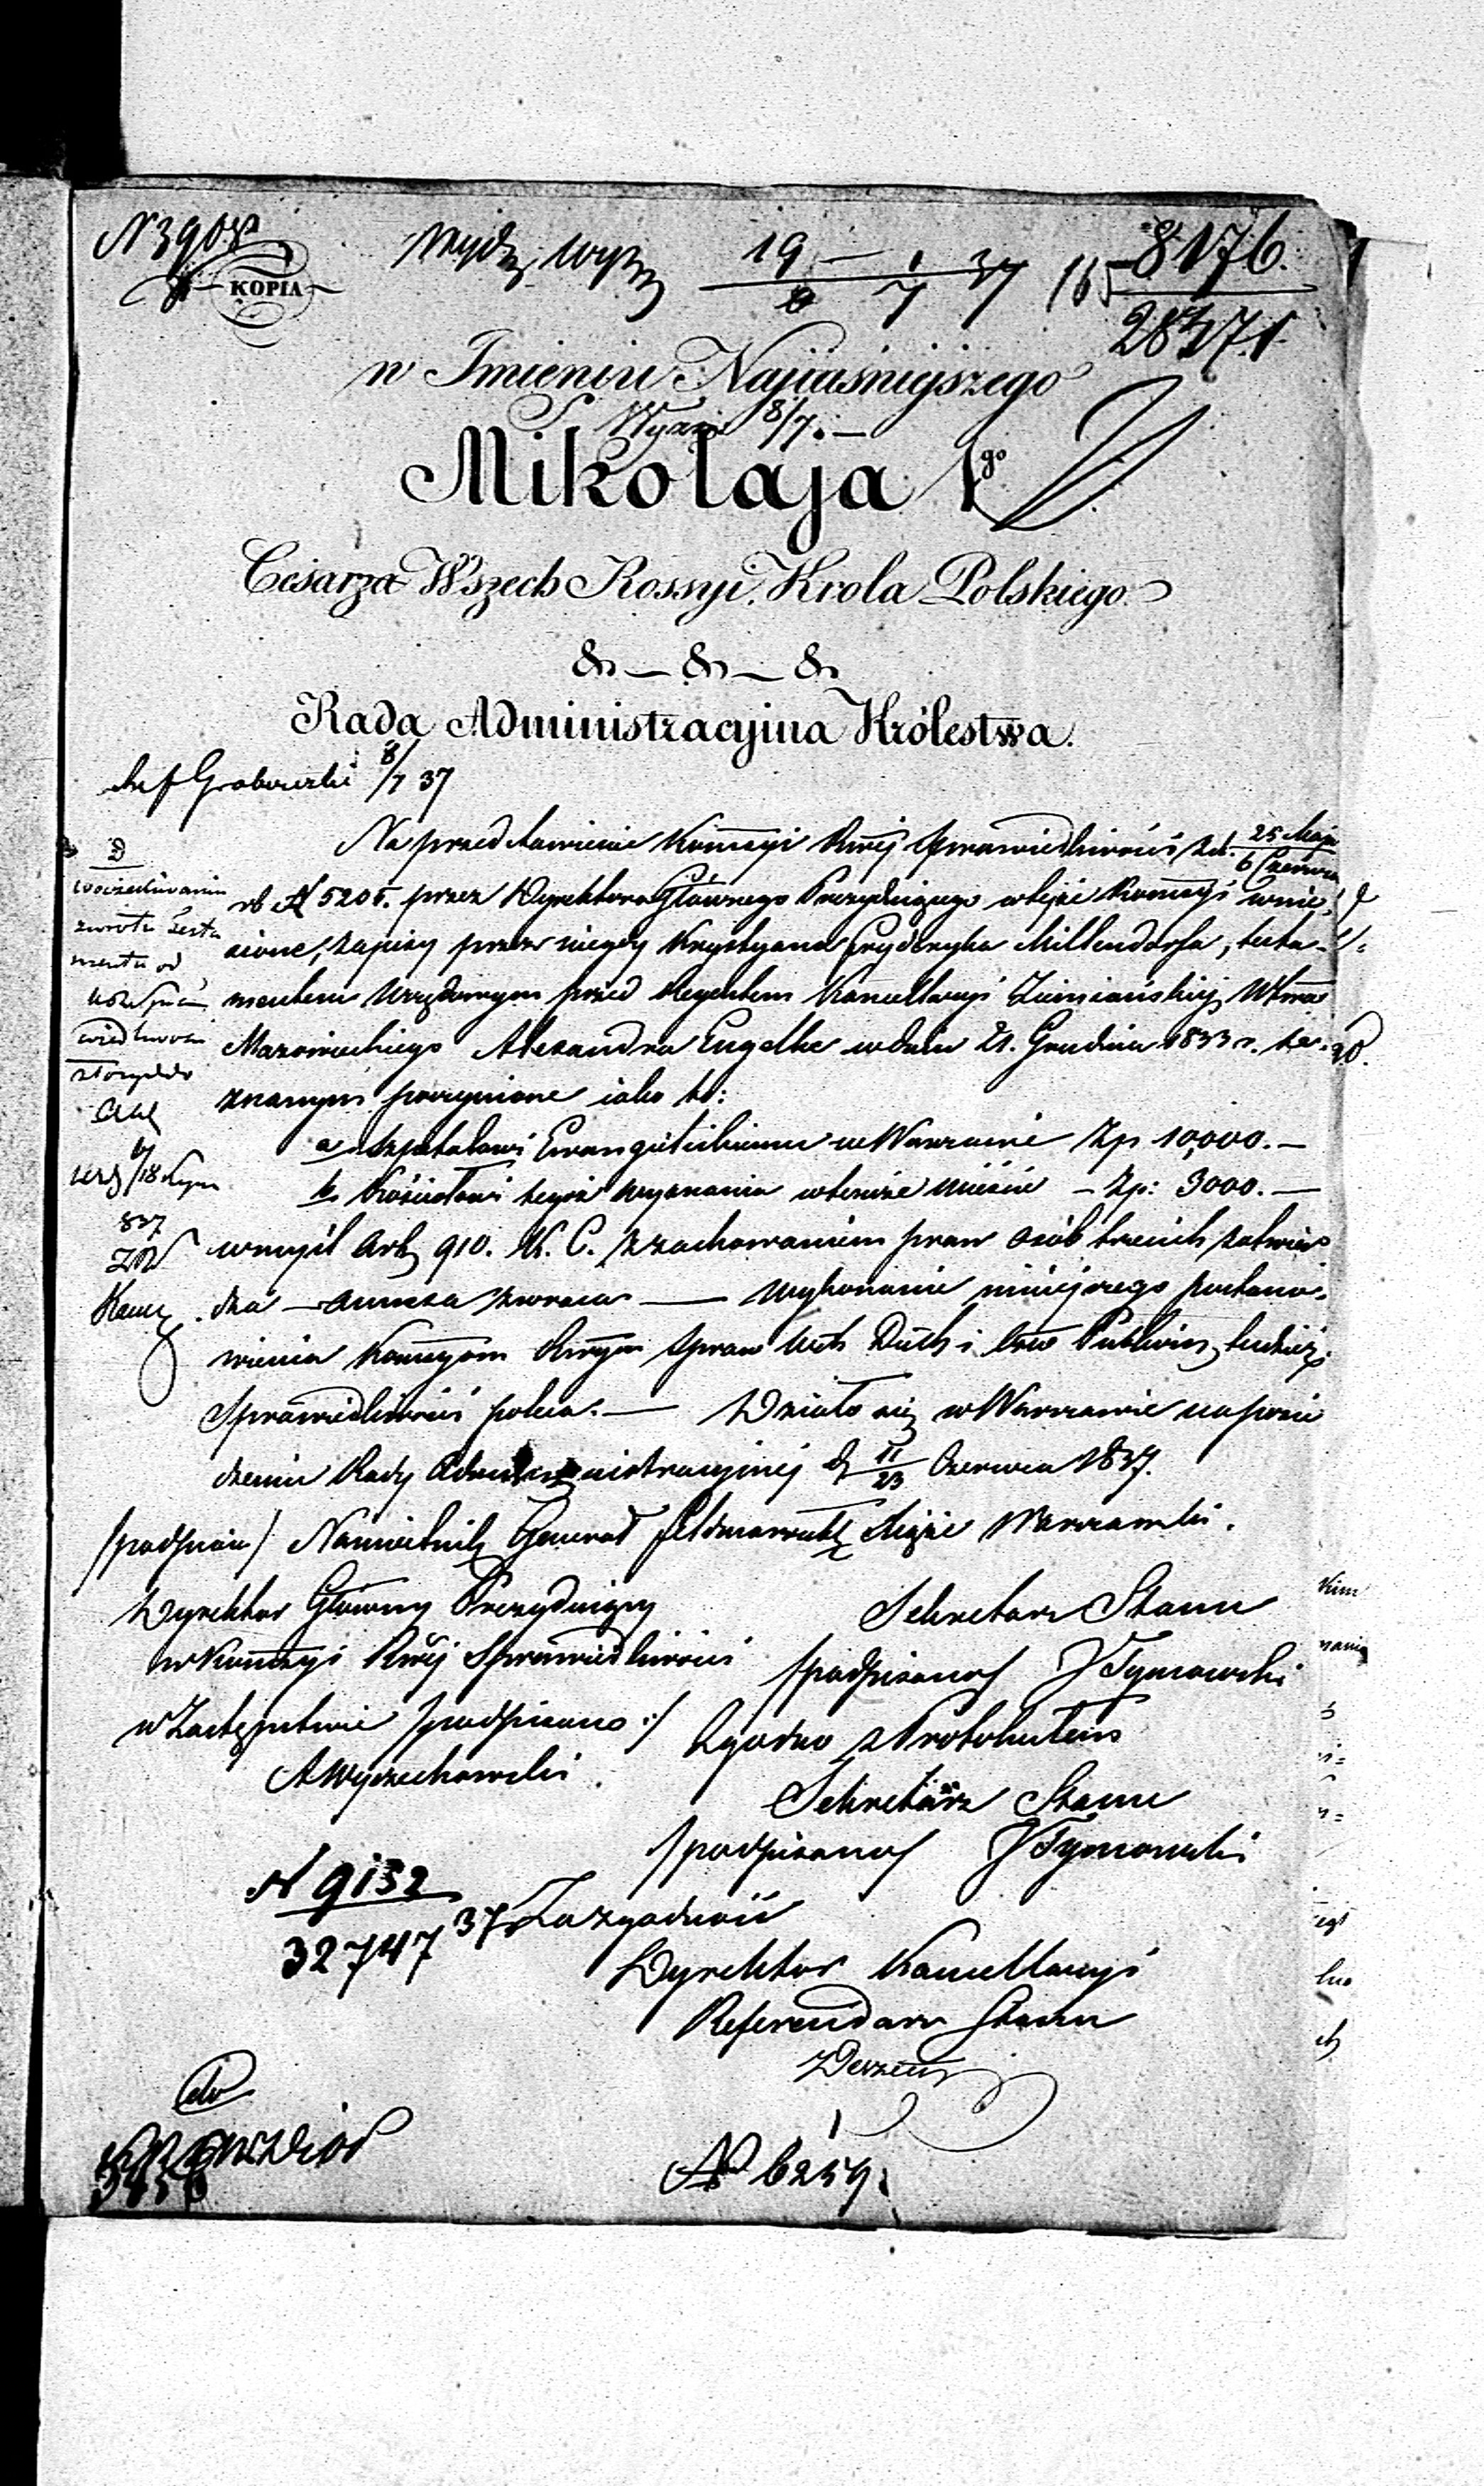 N 3908
KOPIA
Wydz. Wyzn
19 — 1 37
8 7
165 8176.
28371
w Imieniu Najjaśniejszego
Wyzn 8/7. —
Mikołaja Igo
Cesarza Wszech Rossyi, Krola Polskiego.
& — & — &
Rada Administracyjna Królestwa.
Grabowski 8/7 37
Na przedstawienie Kommyi Rwéj Sprawiedliwości zd. 25 Maja
6 Czerwca
rb N 5205. przez Dyrektora Głównego Prezydującego w tejże Kommyi wnie-
sione, zapisy przez niegdy Krystyana Frydryka Mittendorfa, testa-
mentem urzędowym przed Rejentem Kancellaryi Ziemiańskiej Wtwa
Mazowieckiego Alexandra Engelke w dniu 21. Grudnia 1833 r. ze-
znanym poczynione iako to:
a. Szpitalowi Ewangelickiemu w Warszawie Zp 10,000. —
b. Kościołowi tegoż wyznania w temże mieście — Zp: 3000. —
w myśl Art. 910. K. C. z zachowaniem praw osób trzecich zatwier-
dza — annexa zwraca — Wykonanie niniejszego postano-
wienia Kommyom Rwym Spraw Wch Duch i Ośw Publicz, tudzież
Sprawiedliwości poleca. — Działo się w Warszawie na posie
dzeniu Rady Administracyjnej d 11/23 Czerwca 1837.
/podpisano/ Namiestnik Generał Feldmarszałek Xiąże Warszawski.
Dyrektor Główny Prezydujący
w Kommyi Rwéj Sprawiedliwości
w Zastępstwie /podpisano:/
A Wyczechowski
Sekretarz Stanu
/podpisano/ J Tymowski
Zgodno z Protokułem
Sekretarz Stanu
/podpisano/ J Tymowski
N 9132
32747 37
Za zgodność
Dyrektor Kancellaryi
Referendarz Stanu
D
zwrotu Testa
mentu od
wiedliwości
6/18
837
N 6259.